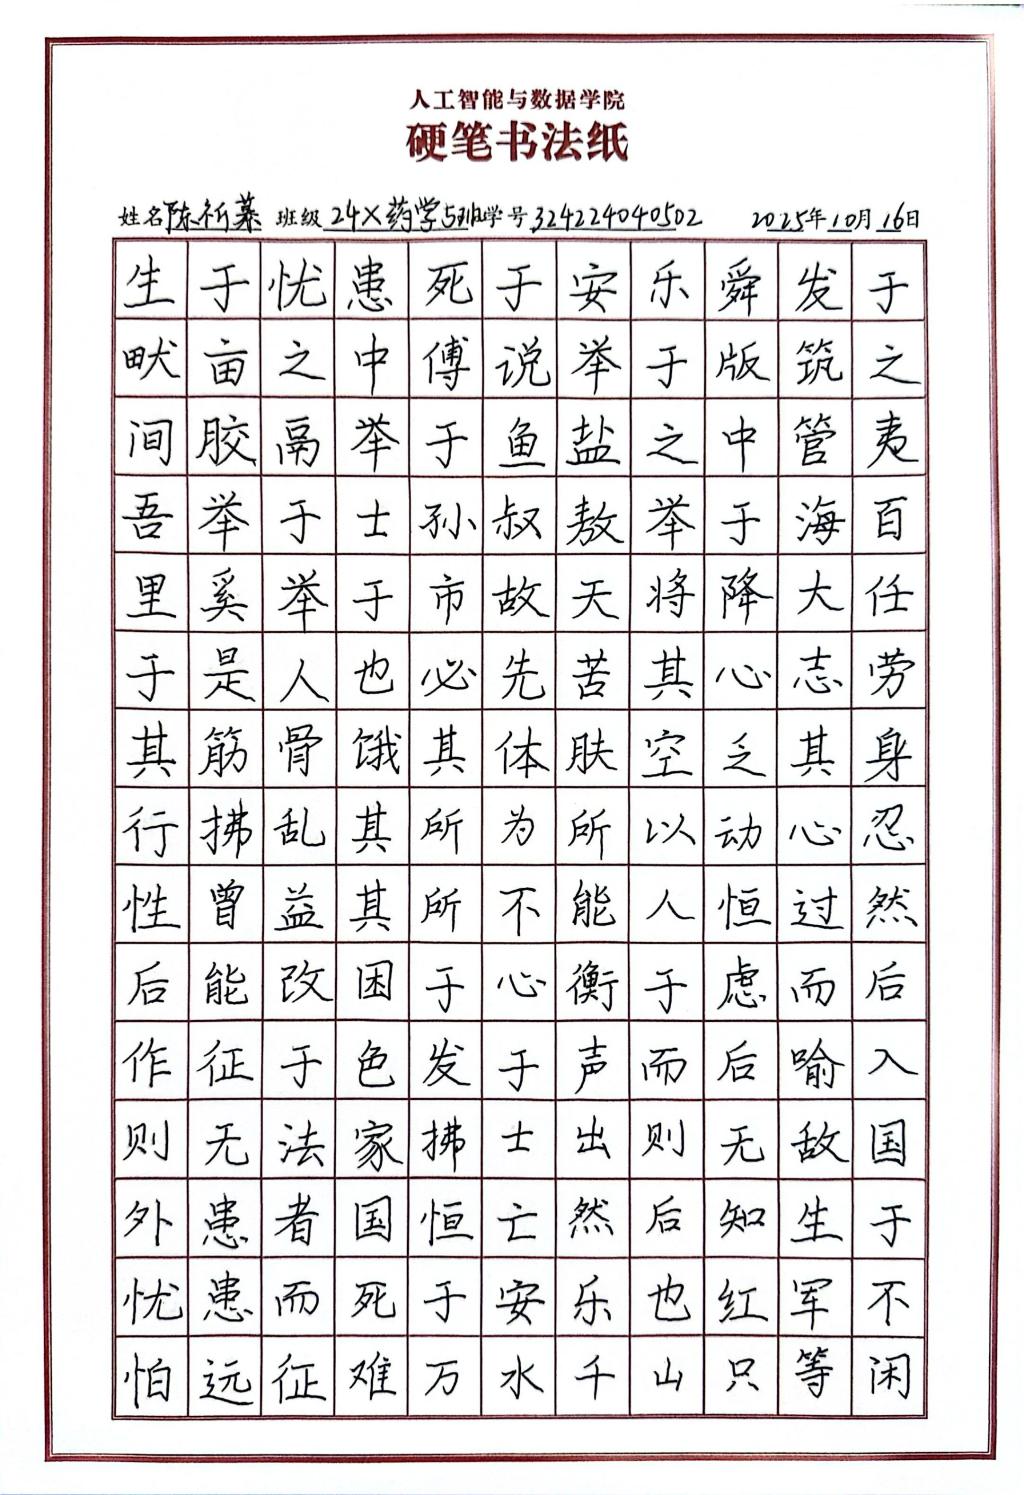 人工智能与数据学院
硬笔书法纸
姓名 陈祈慕 班级 24X药学5班 学号 324224040502 2025年10月16日
生于忧患死于安乐舜发于
畎亩之中傅说举于版筑之
间胶鬲举于鱼盐之中管夷
吾举于士孙叔敖举于海百
里奚举于市故天将降大任
于是人也必先苦其心志劳
其筋骨饿其体肤空乏其身
行拂乱其所为所以动心忍
性曾益其所不能人恒过然
后能改困于心衡于虑而后
作征于色发于声而后喻入
则无法家拂士出则无敌国
外患者国恒亡然后知生于
忧患而死于安乐也红军不
怕远征难万水千山只等闲